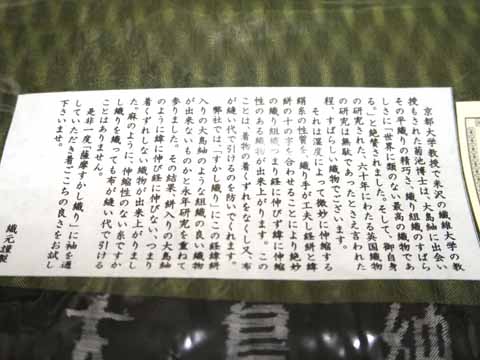 京都大学教授で米沢の繊維大学の教
授もされた前池博士は、大島紬に出会い
その平織りの精巧さ、織り組織のすばら
しさに「世界に類のない最高の織物であ
る。」と絶賛されました。そして、御自身
の研究された、六十年にわたる英国織物
の研究は無駄であったとさえ言われた
程、すばらしい織物でございます。
それは湿度によって微妙に伸縮する
絹糸の性質を、織り手が工夫し経絣と緯
絣の十の字を合わせることにより絶妙
の織り組織、つまり経に伸びず緯に伸縮
性のある織物が出来上がります。この
ことは、着物の着くずれをなくし又、布
が縫い代で引けるのを防いでくれます。
弊社では「すかし織り」にこの経緯絣
入りの大島紬のような組織の良い織物
が出来ないものかと永年研究を重ねて
参りました。その結果、絣入りの大島紬
のように緯に伸び経に伸びない、つまり
着くずれしない織物が出来上がりまし
た。麻のように、伸縮性のない糸ですか
し織りを織っても布が縫い代で引ける
ことはありません。
是非一度「薩摩すかし織り」に袖を通
していただき、着ごこちの良さをお試し
下さいませ。
織元謹製
大島紬